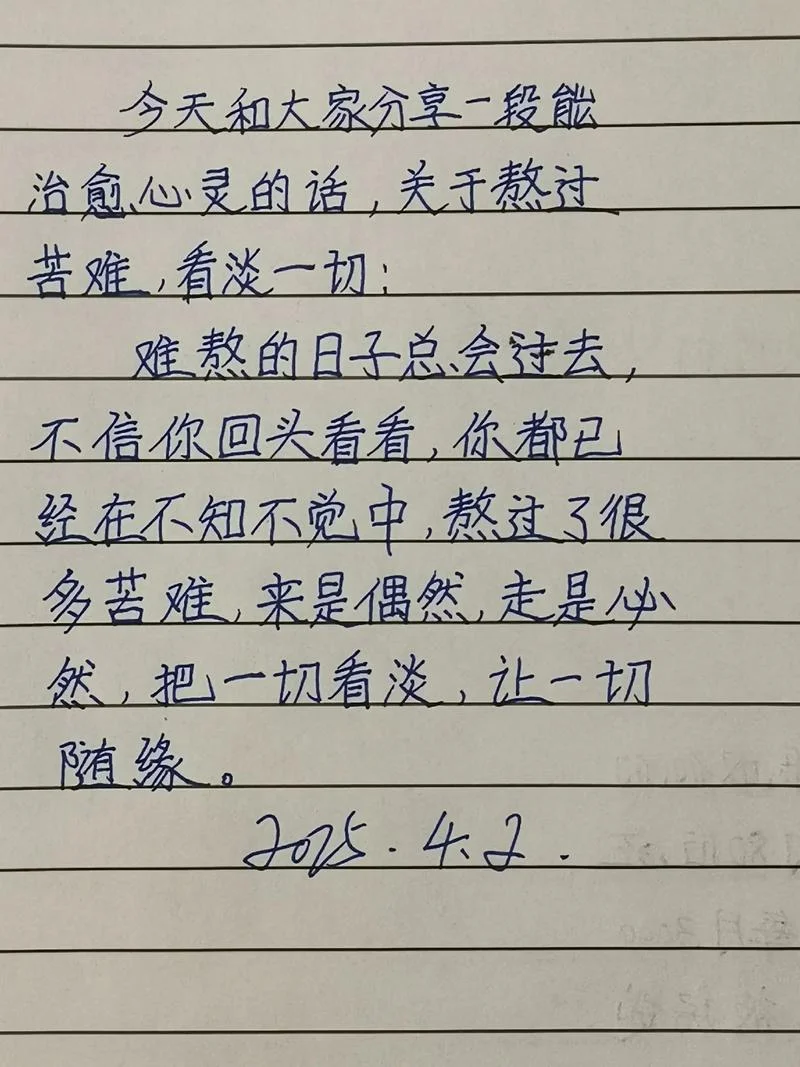 今天和大家分享一段能
治愈心灵的话,关于熬过
苦难,看淡一切:
难熬的日子总会过去,
不信你回头看看,你都已
经在不知不觉中,熬过了很
多苦难,来是偶然,走是必
然,把一切看淡,让一切
随缘。
2025.4.2.